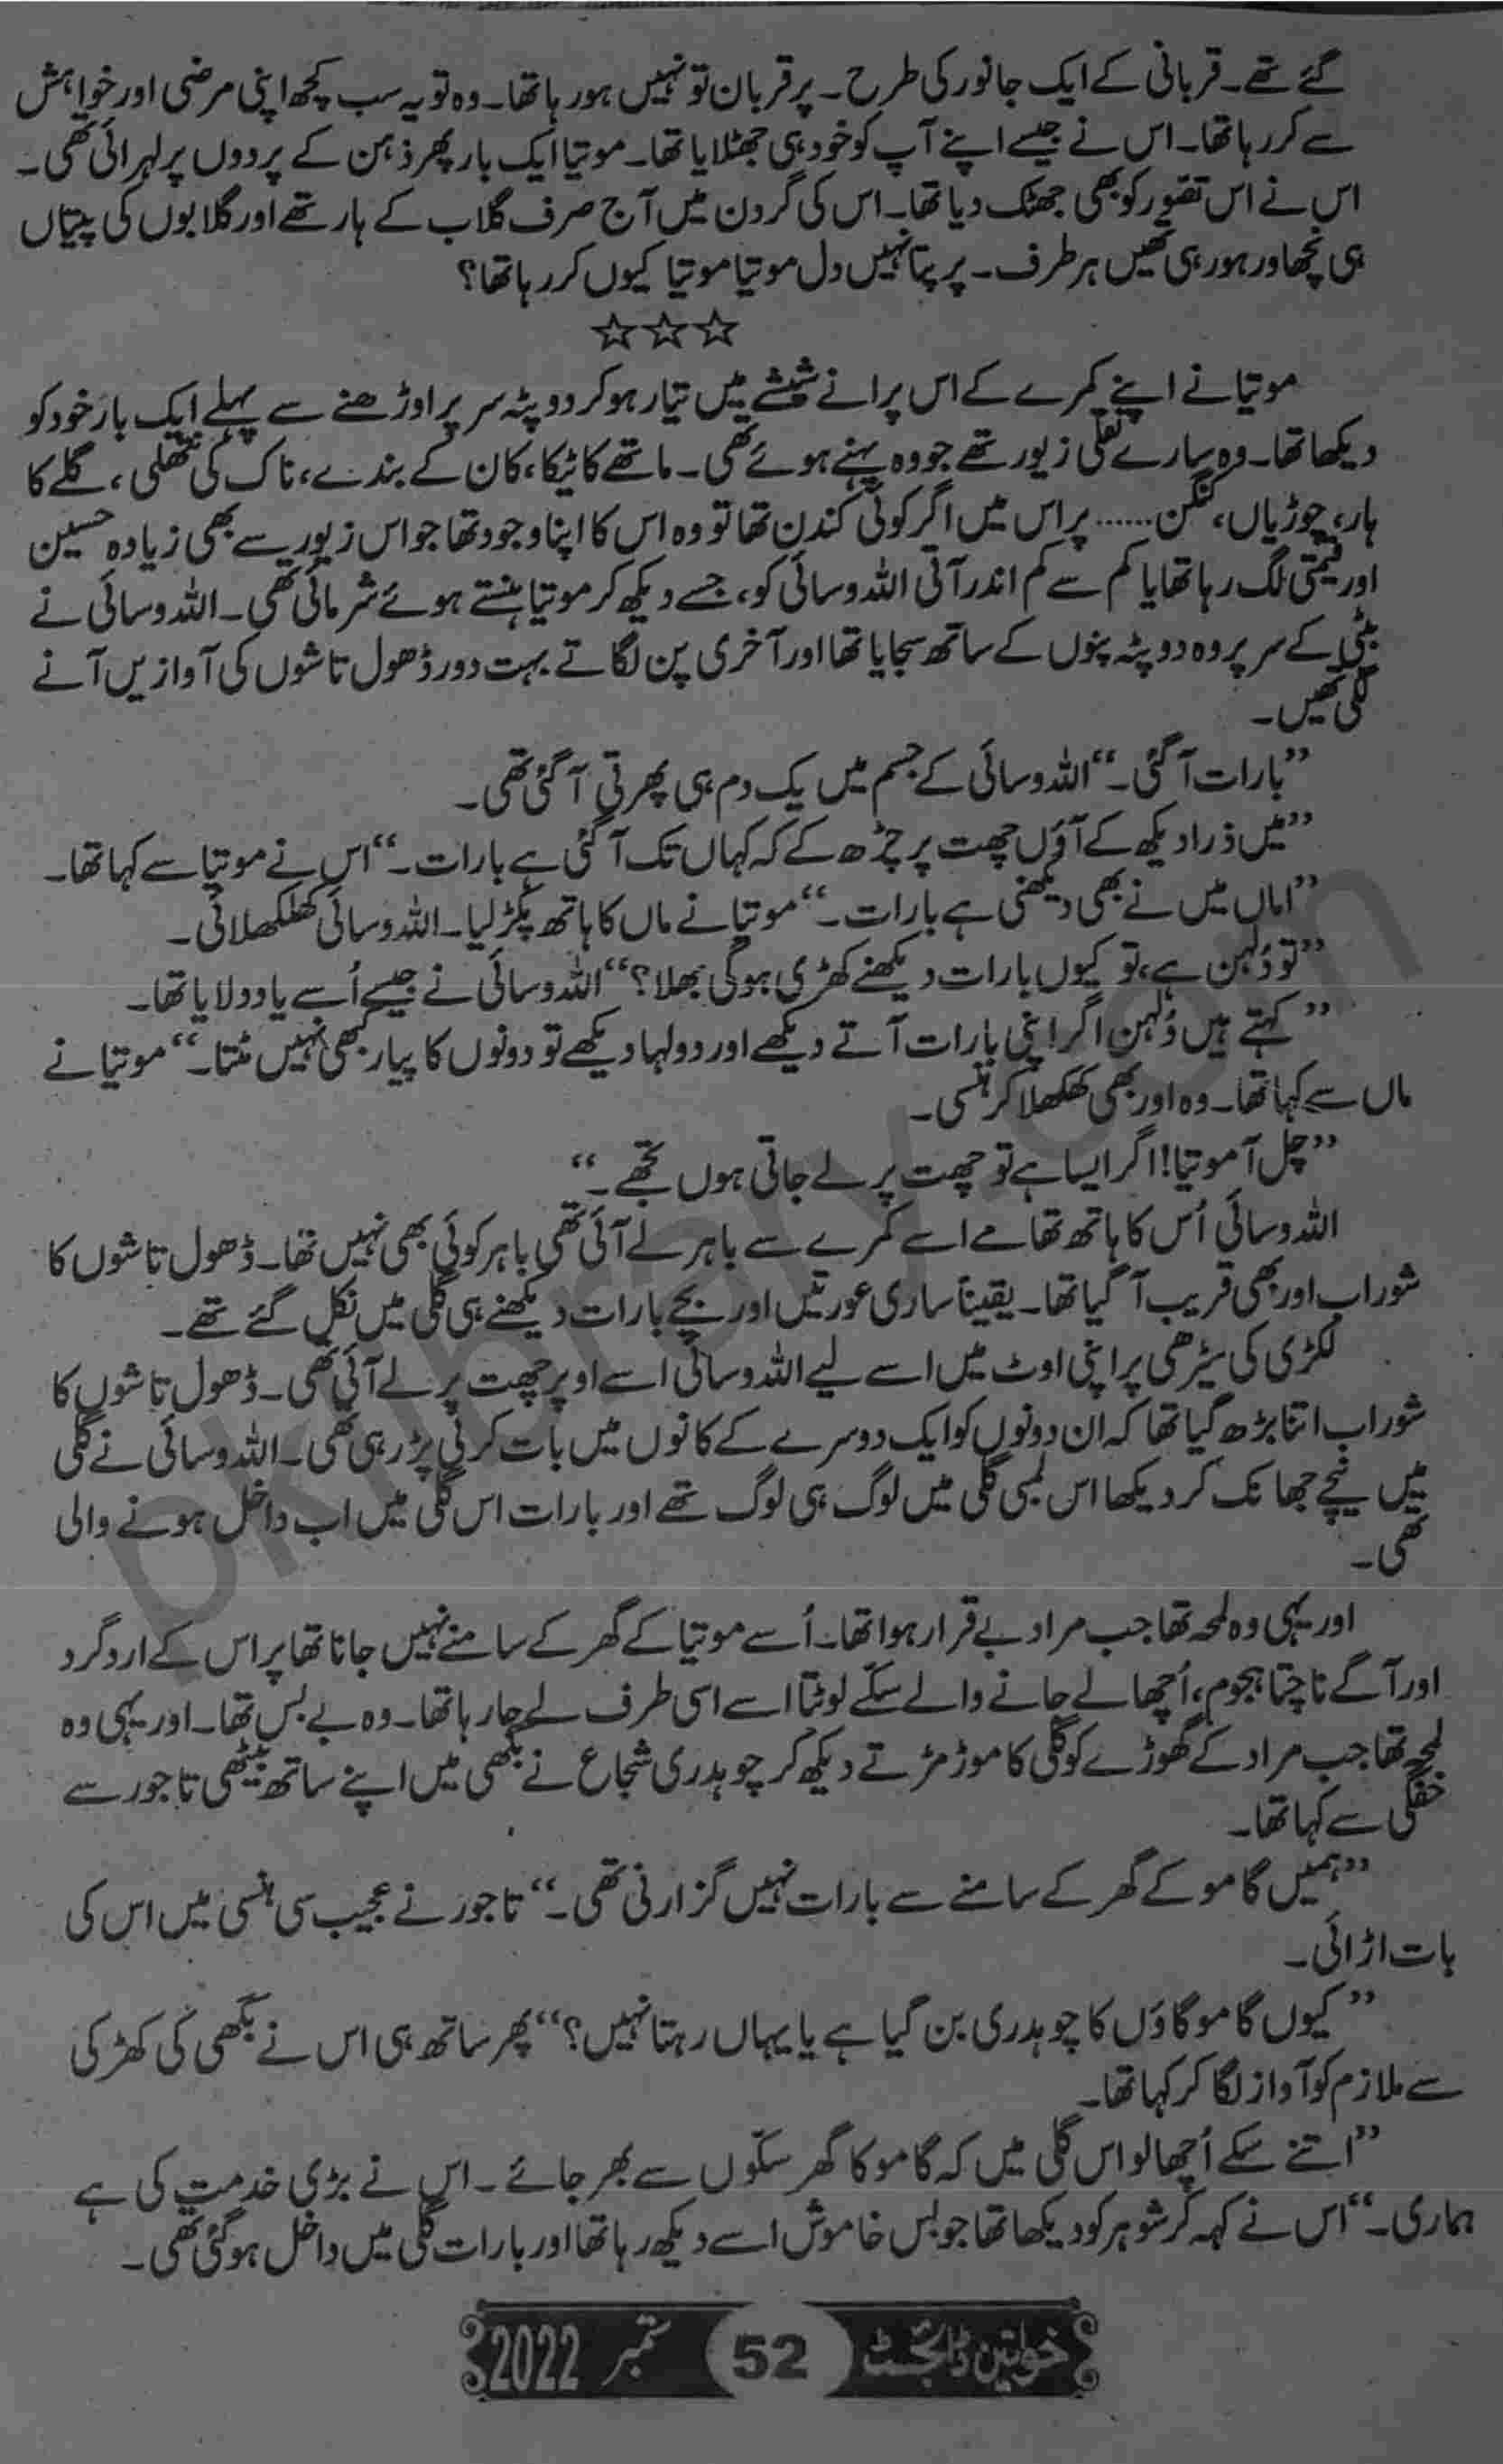 گئے تھے۔ قربانی کے ایک جانور کی طرح۔ پر قربان تو نہیں ہو رہا تھا۔ وہ تو یہ سب کچھ اپنی مرضی اور خواہش
سے کر رہا تھا۔ اس نے جیسے اپنے آپ کو خود ہی جھٹلایا تھا۔ موتیا ایک بار پھر ذہن کے پردوں پر لہرائی تھی۔
اس نے اس تصور کو بھی جھٹک دیا تھا۔ اس کی گردن میں آج صرف گلاب کے ہار تھے اور گلابوں کی پتیاں
ہی نچھاور ہو رہی تھیں ہر طرف۔ پر پتا نہیں دل موتیا موتیا کیوں کر رہا تھا؟
☆☆☆
موتیا نے اپنے کمرے کے اس پرانے شیشے میں تیار ہو کر دوپٹہ سر پر اوڑھنے سے پہلے ایک بار خود کو
دیکھا تھا۔ وہ سارے نقلی زیور تھے جو وہ پہنے ہوئے تھی۔ ماتھے کا ٹیکا، کان کے بندے، ناک کی نتھلی، گلے کا
ہار، چوڑیاں، کنگن...... پر اس میں اگر کوئی کندن تھا تو وہ اس کا اپنا وجود تھا جو اس زیور سے بھی زیادہ حسین
اور قیمتی لگ رہا تھا یا کم سے کم اندر آتی اللہ وسائی کو، جسے دیکھ کر موتیا ہنستے ہوئے شرمائی تھی۔ اللہ وسائی نے
بیٹی کے سر پر وہ دوپٹہ پنوں کے ساتھ سجایا تھا اور آخری پن لگاتے بہت دور ڈھول تاشوں کی آوازیں آنے
لگی تھیں۔
”بارات آ گئی۔“ اللہ وسائی کے جسم میں یک دم ہی پھرتی آ گئی تھی۔
”میں ذرا دیکھ کے آؤں چھت پر چڑھ کے کہ کہاں تک آ گئی ہے بارات۔“ اس نے موتیا سے کہا تھا۔
”اماں میں نے بھی دیکھنی ہے بارات۔“ موتیا نے ماں کا ہاتھ پکڑ لیا۔ اللہ وسائی کھلکھلائی۔
”تو دُلہن ہے، تو کیوں بارات دیکھنے کھڑی ہو گی بھلا؟“ اللہ وسائی نے جیسے اُسے یاد دلایا تھا۔
”کہتے ہیں دُلہن اگر اپنی بارات آتے دیکھے اور دولہا دیکھے تو دونوں کا پیار کبھی نہیں مٹتا۔“ موتیا نے
ماں سے کہا تھا۔ وہ اور بھی کھلکھلا کر ہنسی۔
”چل آ موتیا! اگر ایسا ہے تو چھت پر لے جاتی ہوں تجھے۔“
اللہ وسائی اُس کا ہاتھ تھامے اسے کمرے سے باہر لے آئی تھی باہر کوئی بھی نہیں تھا۔ ڈھول تاشوں کا
شور اب اور بھی قریب آ گیا تھا۔ یقیناً ساری عورتیں اور بچے بارات دیکھنے ہی گلی میں نکل گئے تھے۔
لکڑی کی سیڑھی پر اپنی اوٹ میں اسے لیے اللہ وسائی اسے اوپر چھت پر لے آئی تھی۔ ڈھول تاشوں کا
شور اب اتنا بڑھ گیا تھا کہ ان دونوں کو ایک دوسرے کے کانوں میں بات کرنی پڑ رہی تھی۔ اللہ وسائی نے گلی
میں نیچے جھانک کر دیکھا اس لمبی گلی میں لوگ ہی لوگ تھے اور بارات اس گلی میں اب داخل ہونے والی
تھی۔
اور یہی وہ لمحہ تھا جب مراد بے قرار ہوا تھا۔ اُسے موتیا کے گھر کے سامنے نہیں جانا تھا پر اس کے ارد گرد
اور آگے ناچتا ہجوم، اُچھالے جانے والے سکّے لوٹتا اسے اسی طرف لے جا رہا تھا۔ وہ بے بس تھا۔ اور یہی وہ
لمحہ تھا جب مراد کے گھوڑے کو گلی کا موڑ مڑتے دیکھ کر چوہدری شجاع نے بگھی میں اپنے ساتھ بیٹھی تاجور سے
خفگی سے کہا تھا۔
”ہمیں گامو کے گھر کے سامنے سے بارات نہیں گزارنی تھی۔“ تاجور نے عجیب سی ہنسی میں اس کی
بات اڑائی۔
”کیوں گامو گاؤں کا چوہدری بن گیا ہے یا یہاں رہتا نہیں؟“ پھر ساتھ ہی اس نے بگھی کی کھڑکی
سے ملازم کو آواز لگا کر کہا تھا۔
”اتنے سکے اُچھالو اس گلی میں کہ گامو کا گھر سکّوں سے بھر جائے۔ اس نے بڑی خدمت کی ہے
ہماری۔“ اس نے کہہ کر شوہر کو دیکھا تھا جو بس خاموش اسے دیکھ رہا تھا اور بارات گلی میں داخل ہو گئی تھی۔
خواتین ڈائجسٹ 52 ستمبر 2022
pklibrary.com